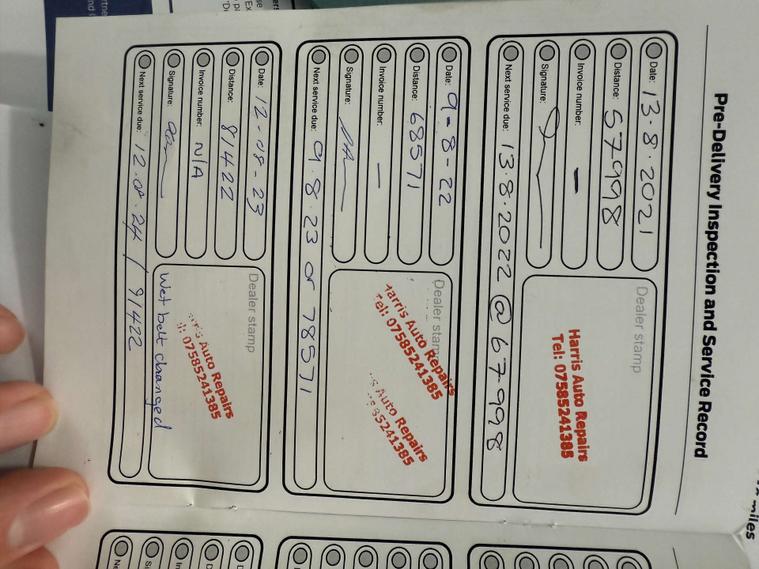 Pre-Delivery Inspection and Service Record
Date: 13.8.2021
Distance: 57998
Invoice number: -
Signature:
Next service due: 13.8.2022 @ 67998
Dealer stamp
Harris Auto Repairs
Tel: 07585241385
Date: 9-8-22
Distance: 68571
Invoice number: -
Signature:
Next service due: 9.8.23 or 78571
Dealer stamp
Harris Auto Repairs
Tel: 07585241385
Auto Repairs
85241385
Date: 12-08-23
Distance: 81422
Invoice number: N/A
Signature:
Next service due: 12.08.24 / 91422
Dealer stamp
Auto Repairs
: 07585241385
Wet belt changed
miles